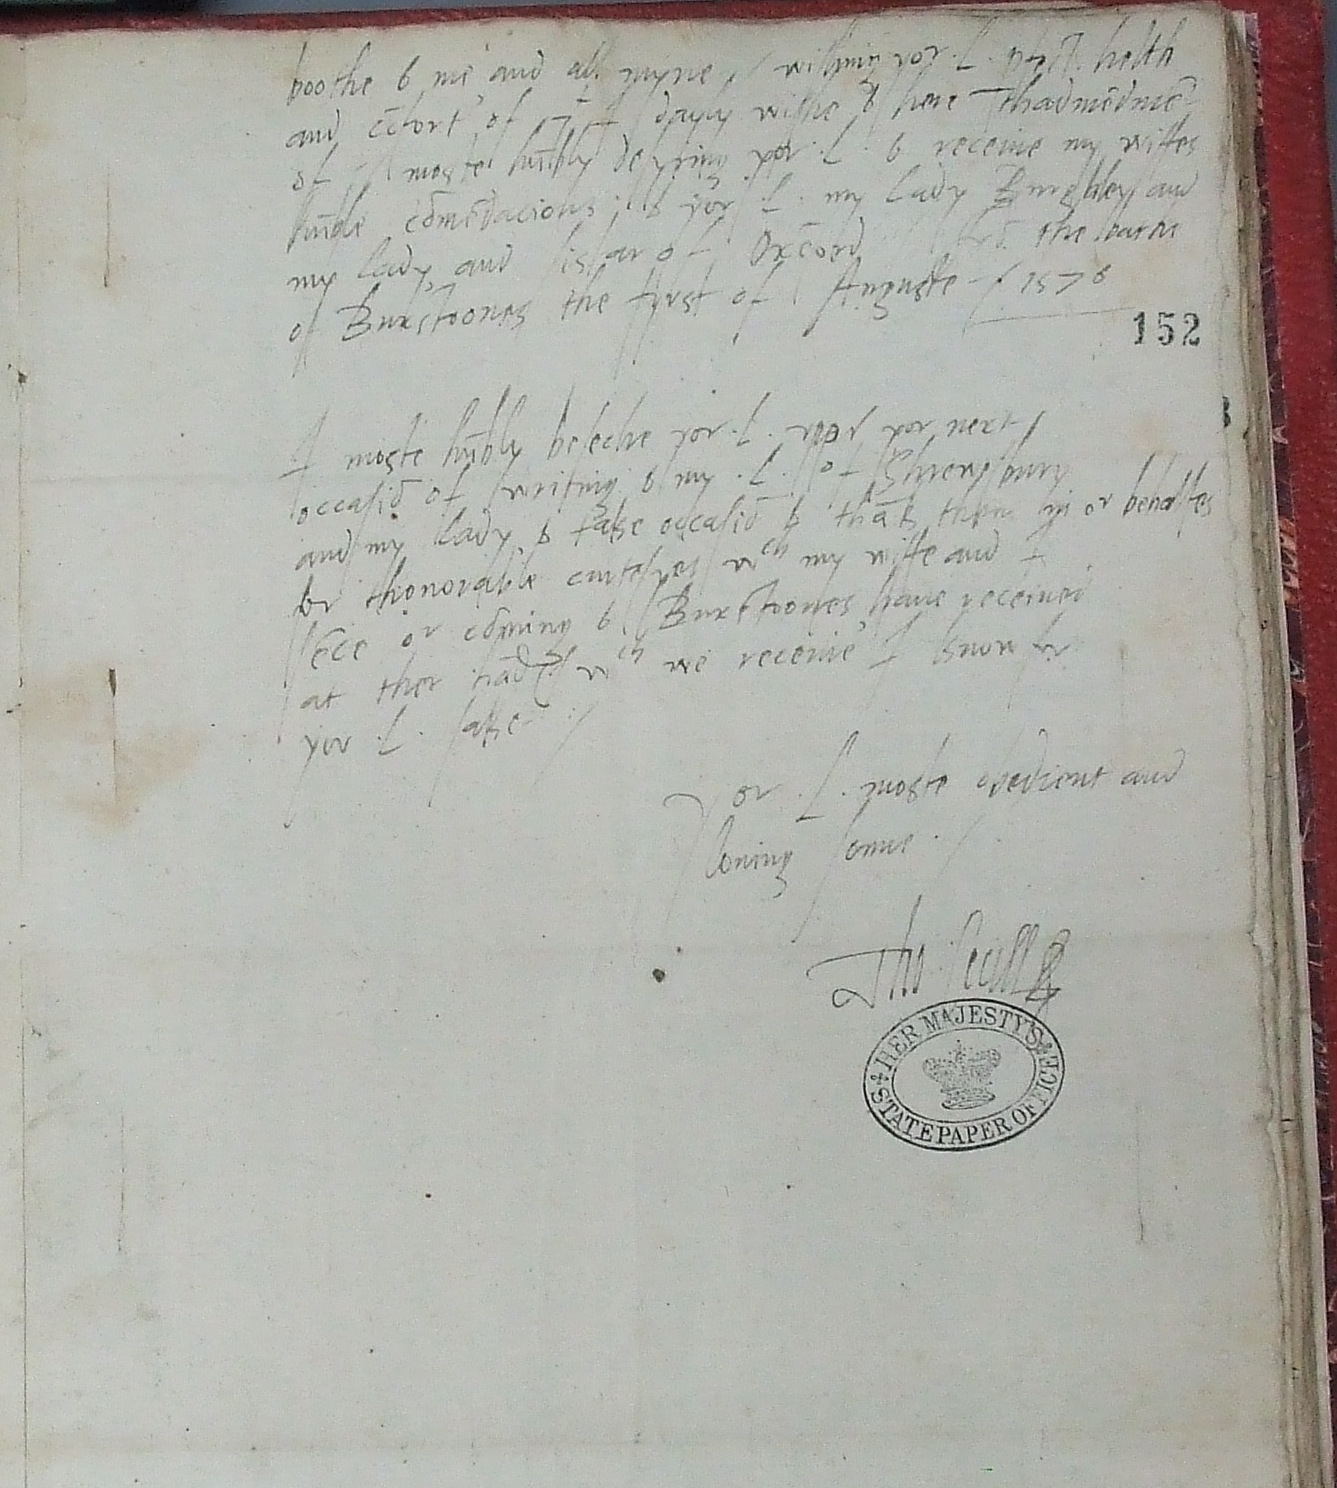 boothe to me and all myne / wisshing yor .L. helth
and cōfort of I dayly wishe to here thadmēdmē-
of / moste hūbly desyring yor .L. to receive my wiffes
hūble cōmēdacions, to yor .L. my lady Burghley and
my lady and of Oxford the baths
of Buxstoones the fyrst of Auguste - / 1578
152
I moste hūbly beseche yor .L. vpō yor next
occasiō of writing to my .L. of Shrewsbury
and my lady to take occasiō to thāk them in or behalfes
for thonorable curtesyes wch my wiffe and I
sēce or cōming to Buxstoones have received
at ther hādes wch we receive I know for
yor .L. sake - /
Yor .L. moste obedient and
loving sonne . /
Tho Cecill
HER MAJESTY'S
STATE PAPER OFFICE